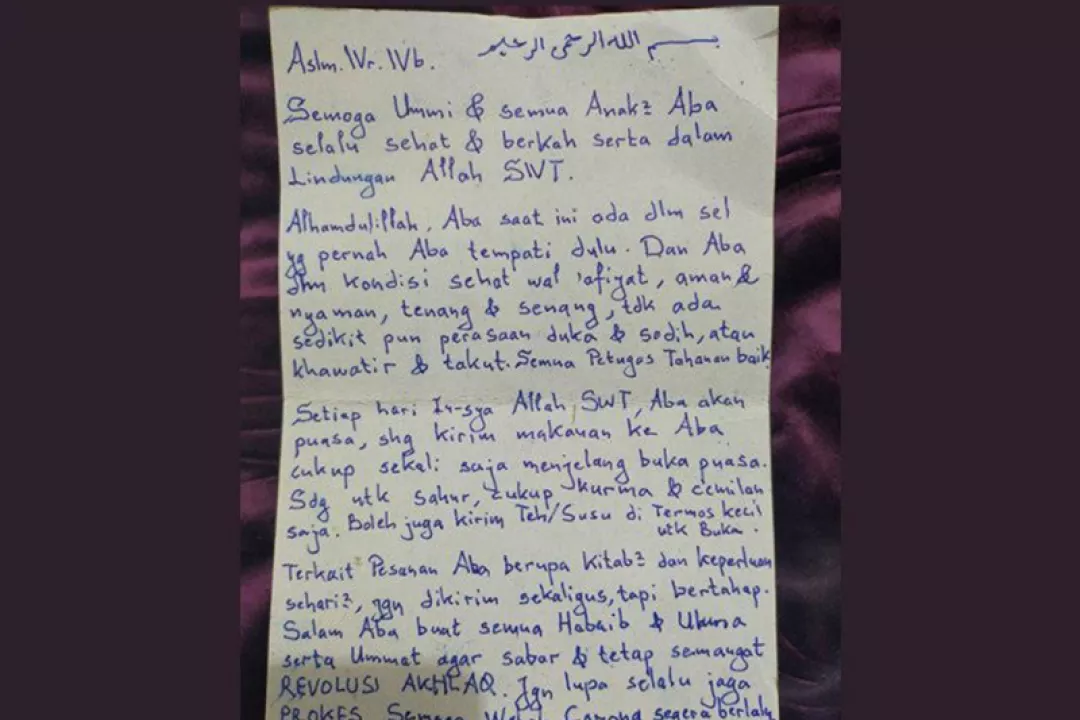 بسم الله الرحمن الرحيم
Aslm. Wr. Wb.
Semoga Ummi & semua Anak² Aba
selalu sehat & berkah serta dalam
Lindungan Allah SWT.
Alhamdulillah, Aba saat ini ada dlm sel
yg pernah Aba tempati dulu. Dan Aba
dlm kondisi sehat wal 'afiyat, aman &
nyaman, tenang & senang, tdk ada
sedikit pun perasaan duka & sedih, atau
khawatir & takut. Semua Petugas Tahanan baik
Setiap hari In-sya Allah SWT, Aba akan
puasa, shg kirim makanan ke Aba
cukup sekali saja menjelang buka puasa.
Sdg utk sahur, cukup kurma & cemilan
saja. Boleh juga kirim Teh/Susu di Termos kecil
utk Buka.
Terkait Pesanan Aba berupa Kitab² dan keperluan
sehari², jgn dikirim sekaligus, tapi bertahap.
Salam Aba buat semua Habaib & Ulama
serta Ummat agar sabar & tetap semangat
REVOLUSI AKHLAQ. Jgn lupa selalu jaga
PROKES. Semoga Wabah Corona segera berlalu